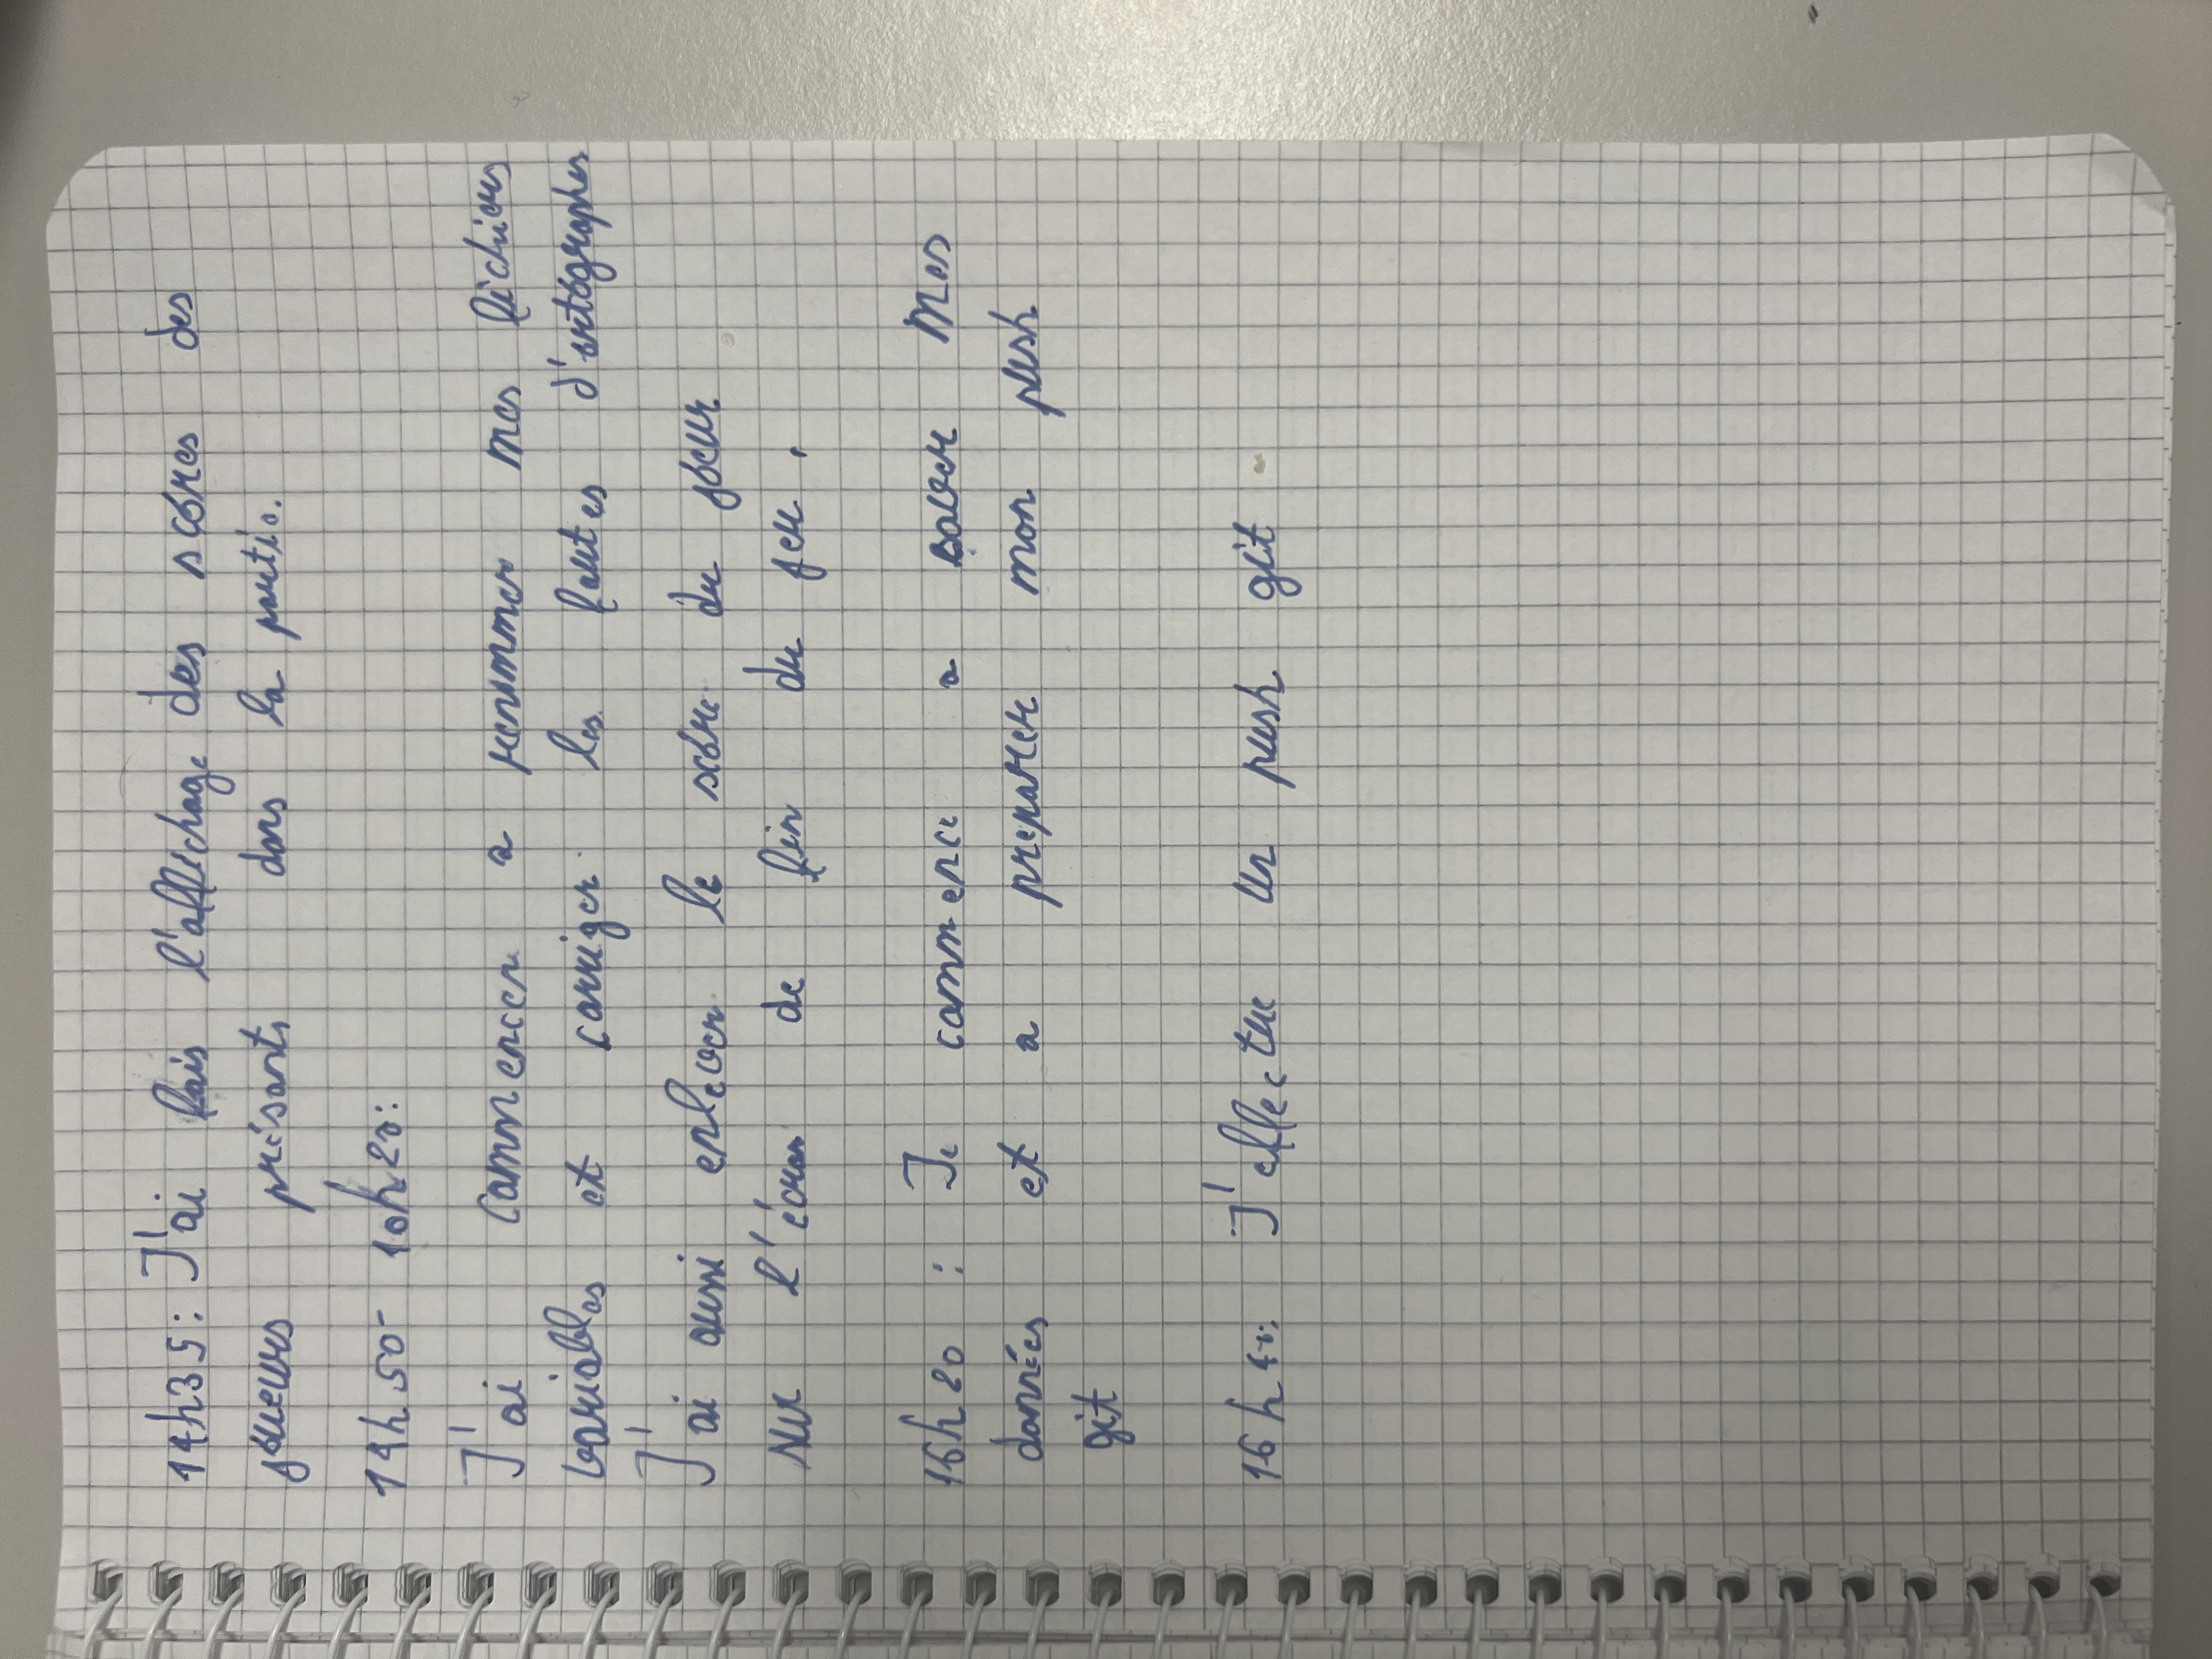 14h35: J'ai fais l'affichage des scores des
joueurs présants dans la partie.
14h50- 16h20:
J'ai commencer a renommer mes fichiers
variables et corriger les fautes d'ortographes
J'ai aussi enlever le score du joeur
sur l'écran de fin du jeu.
16h20 : Je commence a sauver mes
données et a preparer mon push
git
16h40: J'effectue un push git